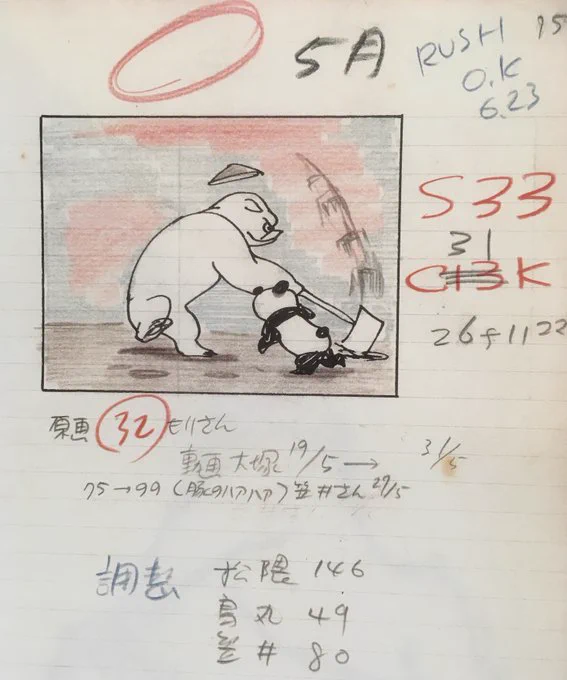 5A
RUSH 15
O.K
6.23
S33
31
C13K
26f 1122
原画 32 もりさん
動画 大塚 19/5 → 31/5
75→99 (豚のハアハア) 笠井さん 29/5
調整 松隈 146
鳥丸 49
笠井 80